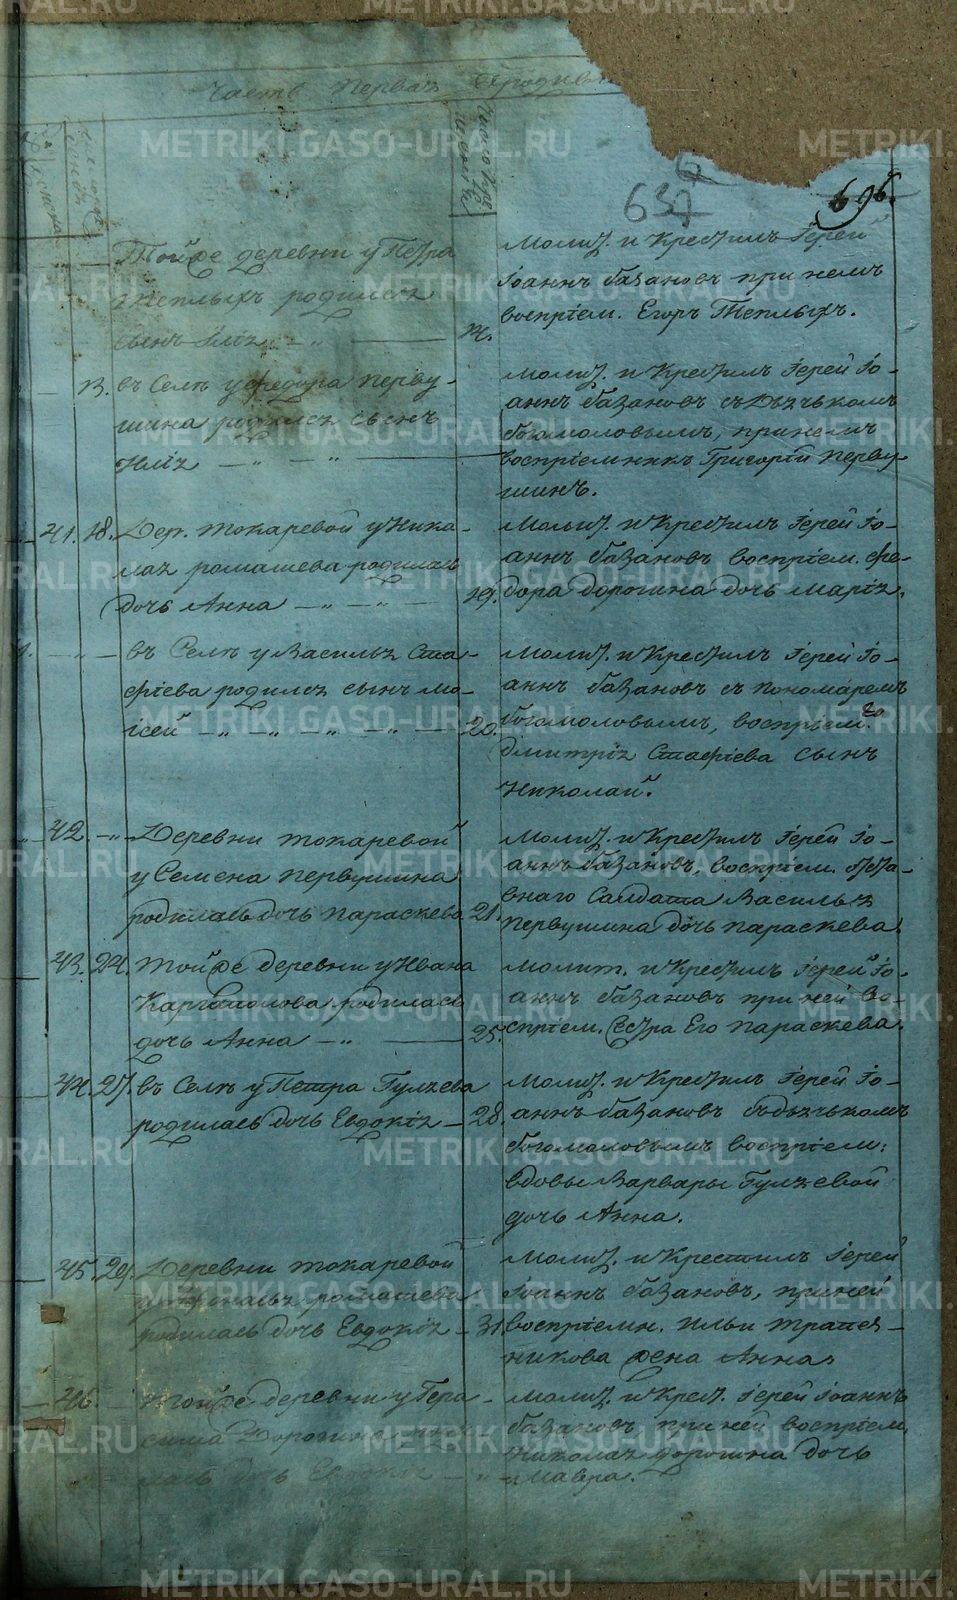 Часть Первая О родив
637
696.
Тойже деревни у Петра
Теплыхъ родился
сынъ Илія 14.
Молит. и Крестилъ Іерей
Іоаннъ Базановъ при немъ
воспріем. Егоръ Теплыхъ.
13. въ Селѣ у Федора Перву-
шина родился сынъ
Илія
Молит. и Крестилъ Іерей Іо-
аннъ Базановъ съ Дьячькомъ
Богомоловымъ, при немъ
воспріемникъ Григорій Перву-
шинъ.
41. 18. Дер. Токаревой у Нико-
лая ромашева родилась
дочь Анна 19.
Молит. и Крестилъ Іерей Іо-
аннъ Базановъ воспріем. Фе-
дора дорогина дочь Марія.
въ Селѣ у Василья Ста-
фіева родился сынъ Мо-
ісей 20.
Молит. и Крестилъ Іерей Іо-
аннъ Базановъ съ пономаремъ
Богомоловымъ, воспріем.
Дмитрія Стафіева сынъ
Николай.
42. Деревни токаревой
у Семена Первушина
родилась дочь Параскева 21.
Молит. и Крестилъ Іерей Іо-
аннъ Базановъ, воспріем. отста-
внаго Салдата Василья
Первушина дочь Параскева.
43. 24. Тойже деревни у Ивана
Каргополова родилась
дочь Анна 25.
Молит. и Крестилъ Іерей Іо-
аннъ Базановъ при ней во-
спріем. Сестра Его Параскева.
44. 27. въ Селѣ у Петра Гуляева
родилась дочь Евдокія 28.
Молит. и Крестилъ Іерей Іо-
аннъ Базановъ съ дьячькомъ
Богомоловымъ воспріем:
вдовы Варвары Гуляевой
дочь Анна.
45. 29. Деревни токаревой
ромашева
родилась дочь Евдокія 31.
Молит. и Крестилъ Іерей
Іоаннъ Базановъ, при ней
воспріемн. Ильи Трапез-
никова жена Анна.
46. Тойже деревни у Гера-
сима Дорогина роди-
лась дочь Евдокія
Молит. и Крест. Іерей Іоаннъ
Базановъ при ней воспріем.
Николая дорогина дочь
Мавра.
METRIKI.GASO-URAL.RU